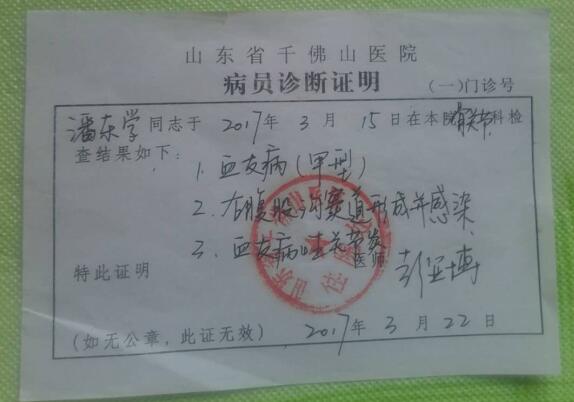 山东省千佛山医院
病员诊断证明
(一)门诊号
潘东学同志于2017年3月15日在本院骨关节科检
查结果如下:
1. 血友病(甲型)
2. 右腹股沟窦道形成并感染
3. 血友病性关节炎
医师 彭亚博
特此证明
(如无公章，此证无效) 2017年3月22日